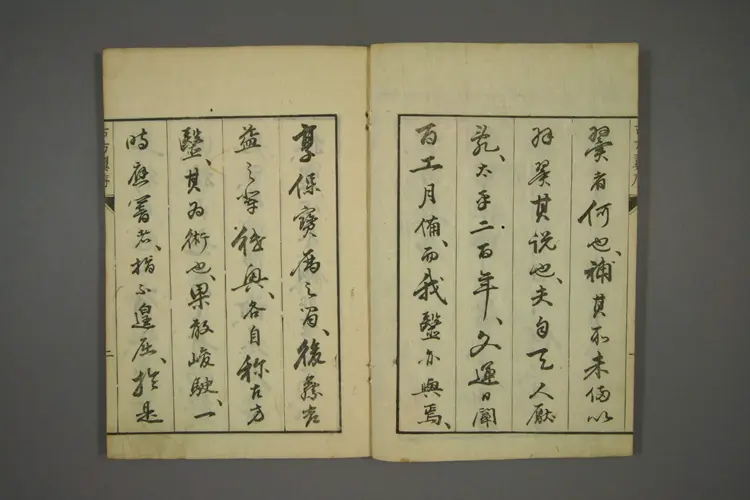 翼者何也、補其所未備以
羽翼其說也、夫自天人厭
亂、太平二百年、文運日闢
百工月備、而我毉亦與焉、
享保寶曆之間、後藤吉
益之輩雄興、各自称古方
毉、其為術也、果敢峻駛、一
時應響者、指不遑屈、於是